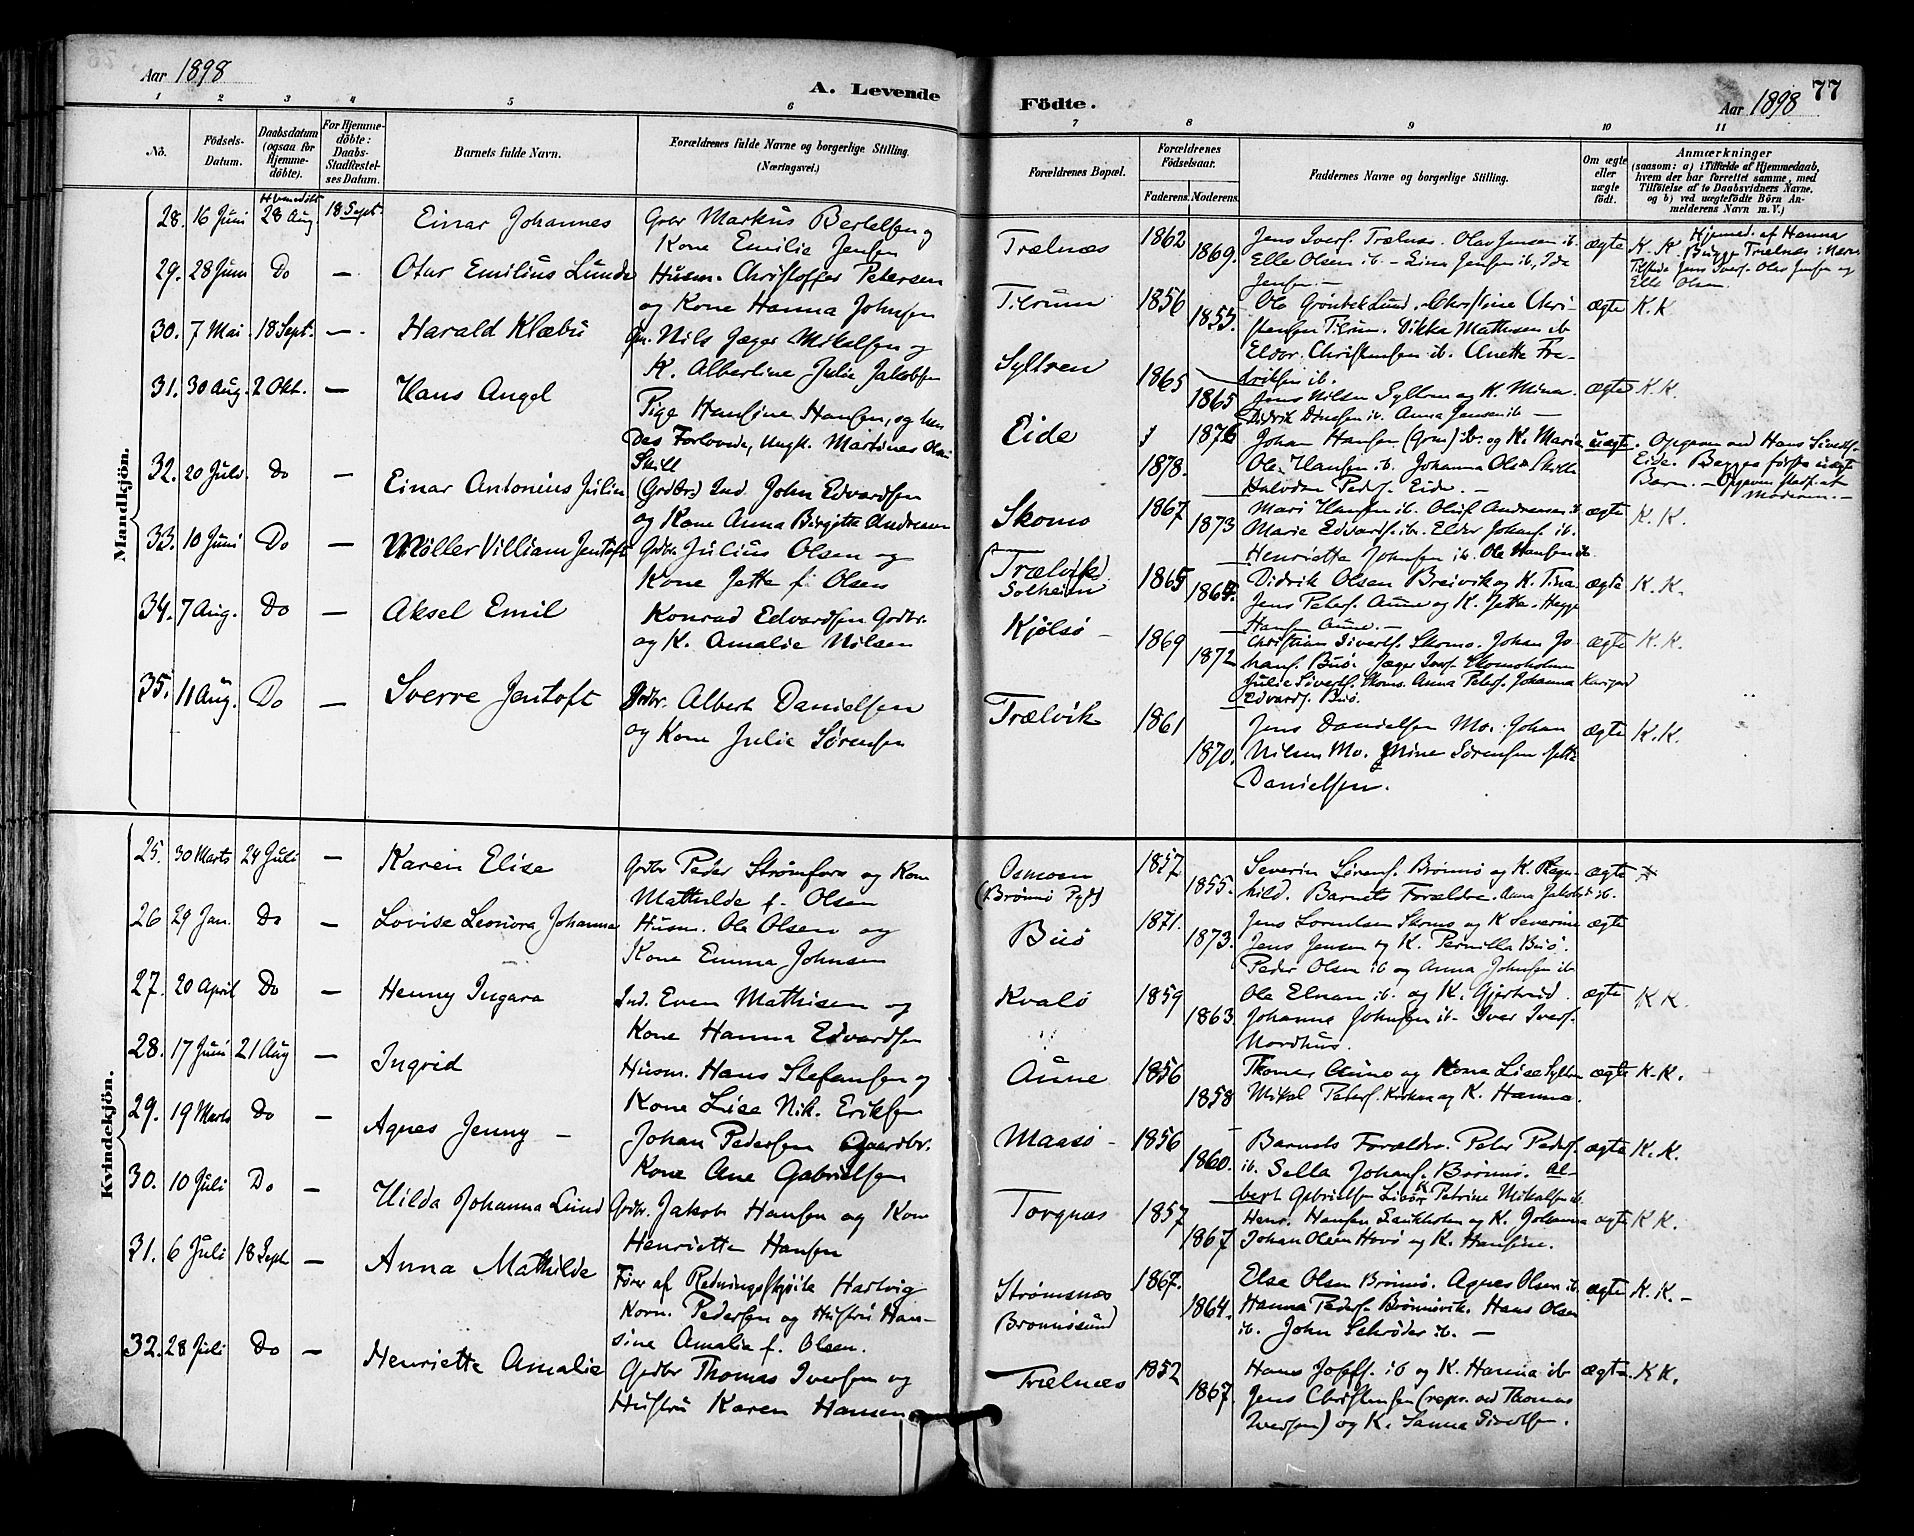 Aar 1898
A. Levende
Födte.
Aar 1898
77
1 2 3 4 5 6 7 8 9 10 11
No.
Födsels-
Datum.
Daabsdatum
(ogsaa for
Hjemme-
döbte).
For Hjemme-
döbte:
Daabs-
Stadfæstel-
ses Datum.
Barnets fulde Navn.
Forældrenes fulde Navne og borgerlige Stilling.
(Næringsvei.)
Forældrenes Bopæl.
Forældrenes
Födselsaar.
Faderens. Moderens.
Faddernes Navne og borgerlige Stilling.
Om ægte
eller
uægte
födt.
Anmærkninger
(saasom: a) i Tilfælde af Hjemmedaab,
hvem der har forrettet samme, med
Tilföielse af to Daabsvidners Navne.
og b) ved uægtefödte Börn An-
melderens Navn m. V.)
Mandkjön.
28. 16 Juni
Hjemedøbt
28 Aug
18 Sept.
Einar Johannes
Grbr Markus Bertelsen og
Kone Emilie Jensen
Trælnæs
1862
1869.
Jens Ivers. Trælnæs. Olav Jensen ib.
Elle Olsen ib. – Lina Jensen ib, Ida
Jensen –
ægte
K. K.
Hjemmed. af Hanna
Bugge Trælnæs i Nærv.
Tilstede Jens Ivers. Olav Jensen og
Elle Olsen
29. 28 Juni Do –
Otar Emilius Lunde
Husm. Christoffer Petersen
og Kone Hanna Johnsen
Tilrum
1856
1853.
Ole Grönbek Lund. Christine Chri-
stensen Tilrum. Vikka Mathisen ib
Eldor. Christensen ib. Anette Fre-
driksen ib.
ægte K. K
30. 7 Mai 18 Sept. –
Harald Klæbu
Gm. Nils Jæger Mikalsen og
K. Albertine Julie Jakobsen
Syltren
1865
1865
Jens Nilsen Syltren og K. Mina
Didrik Jensen ib. Anna Jensen ib –
ægte K. K.
31. 30 Aug. 2 Okt. –
Hans Angel
Pige Hansine Hansen, og hen
des Forlovede, Ungk. Martinus Olai
Skill
Eide
1876
1878.
Johan Hansen (Grm) ib. og K. Marie
Ole Hansen ib. Johanna Olsd Skille
Halvdan Peders. Eide. –
uægte
Opgivn. ved Hans Sivertsf.
Eide. Begges første uægte
Barn. – Opgivn. stadf. af
Moderen. –
32. 20 Juli Do –
Einar Antonius Julin
(Grdbr.) Ind. John Edvardsen
og Kone Anna Birgitte Andresen
Skomo
1867
1873
Mari Hansen ib. Oluf Andresen ib
Marie Edvards. ib. Elder Johans. ib.
Henriette Johnsen ib. Ole Hansen ib.
ægte K. K.
33. 10 Juni Do –
Møller Villiam Jentoft
Grdbr. Julius Olsen og
Kone Jette f. Olsen
(Trælvik)
Solheim
1865
Didrik Olsen Breivik og K. Tina
Jens Peters. Aune og K. Jette. Hegge
Hansen Aune. –
ægte K. K.
34. 7 Aug. Do –
Aksel Emil
Konrad Edvardsen Grdbr.
og K. Amalie Nilsen
Kjölsö –
1869
1872
Christian Sivertsf. Skomo. Johan Jo-
hans. Buö. Jæger Ivers. Skomoholmen
Julie Siverts. Skomo. Anna Peters. Johanna
Edvards. Buö.
ægte K. K.
35. 11 Aug. Do –
Sverre Jentoft
Grdbr. Albert Danielsen
og Kone Julie Sørensen
Trælvik
1861
1870.
Jens Danielsen Mo. Johan
Nilsen Mo. Mine Sørensen Jette
Danielsen.
ægte K. K.
Kvindekjön.
25. 30 Marts 24 Juli –
Karen Elise
Grdbr Peder Strömfors og Kone
Mathilde f. Olsen
Osmoen
(Brönnö Pgd)
1857
1855.
Severin Sörens. Brönnö og K. Ragn-
hild. Barnets Forældre. Anna Jakobsd ib.
ægte
26 29 Jan. Do –
Lovise Leonora Johanna
Husm. Ole Olsen og
Kone Emma Johnsen
Buö
1871.
1873.
Jens Lorentsen Skomo og K Severine
Jens Jensen og K. Pernilla Buö.
Peder Olsen ib og Anna Johnsen ib
ægte
27. 20 April Do –
Henny Ingara
Ind. Even Mathisen og
Kone Hanna Edvardsen
Kvalö
1859
1863
Ole Elnan ib. og K. Gjertrud.
Johanna Johnsen ib. Ivar Ivers.
Nordhus.
ægte K K.
28. 17 Juni 21 Aug –
Ingrid
Husm. Hans Stefansen og
Kone Lise Nik. Eriksen
Aune
1856
1858
Thomas Aune og Kona Lise Syltren
Mikal Peters. Kirken og K. Hanna.
ægte K. K.
29. 19 Marts Do –
Agnes Jenny –
Johan Pedersen Gaardbr.
Kone Ane Gabrielsen
Maasö –
1856
1860.
Barnets Foræld. Peter Peders.
ib. Sella Johans. Brönnö. Al-
bert Gabrielsen Petrine Mikalsen ib
ægte K. K.
30. 10 Juli Do –
Hilda Johanna Lund
Grdbr. Jakob Hansen og Kone
Henriette Hansen
Torgnæs
1857
1867
Henr. Hansen Sankholm og K. Johanna
Johan Olsen Havö og K. Hansine.
ægte K K.
31. 6 Juli 18 Sept –
Anna Mathilde
Fører af Redningsskjöite Hartvig
Korn. Pedersen og Hustru Han-
sine Amalie f. Olsen.
Strömsnæs
Brönnösund
1867.
1864.
Else Olsen Brönnö. Agnes Olsen ib.
Hanna Peders. Brönnövik. Hans Olsen
ib. John Schrøder ib. –
ægte K. K. –
32. 28 Juli Do –
Henriette Amalie
Grdbr Thomas Iversen og
Hustru Karen Hansen
Trælnæs
1852
1867.
Hans Joffs. ib og K. Hanna ib
Jens Christensen (repr. ved Thomas
Iversen) og K. Sanna Sivertsen.
ægte. K K.